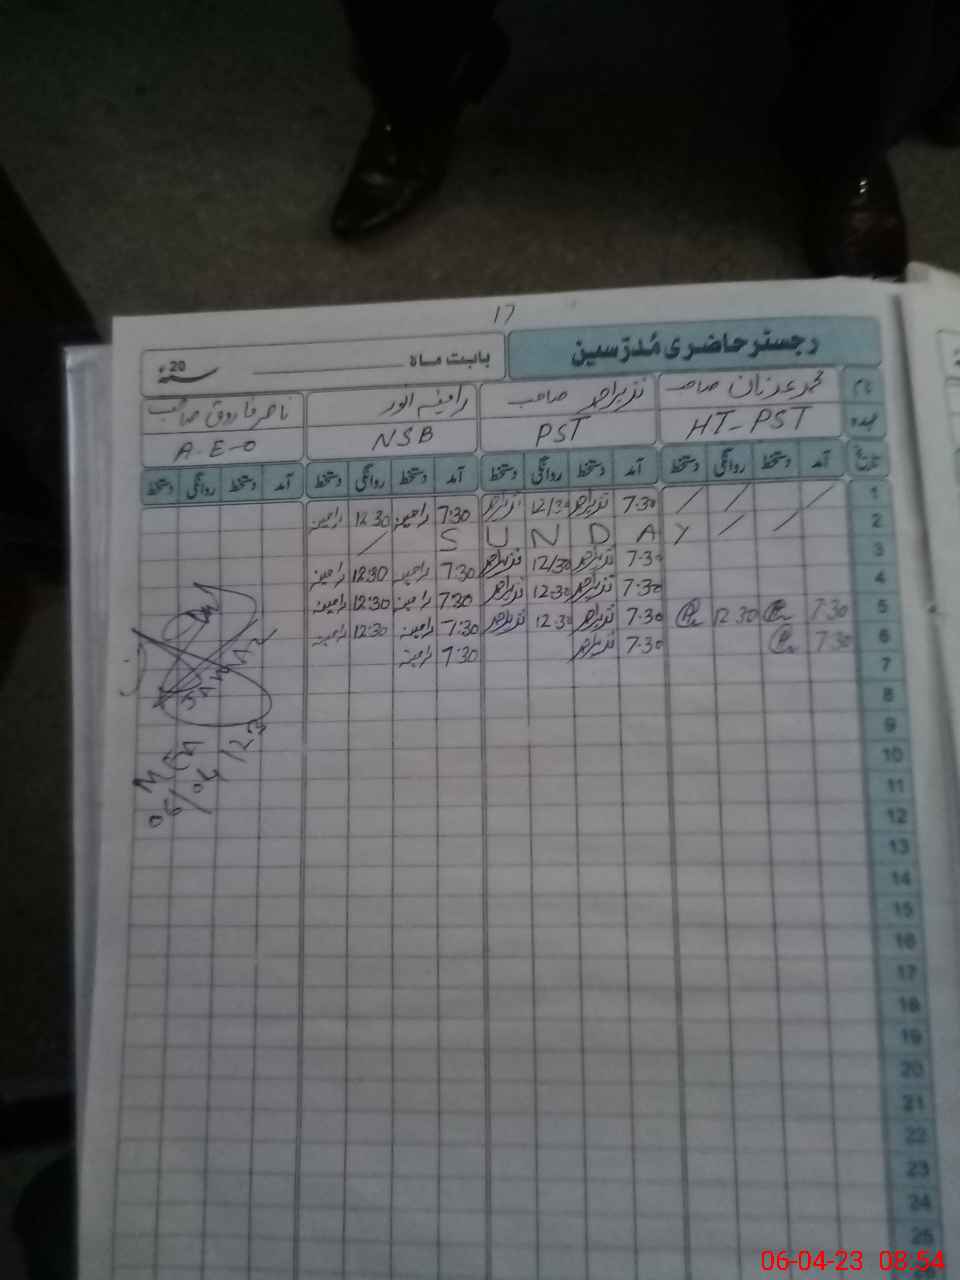 17
رجسٹر حاضری مُدرّسین بابت ماہ سنہ 20
نام محمد عدنان صاحب نذیر احمد صاحب رامینہ انور ناصر فاروق صاحب
عہدہ HT-PST PST NSB A-E-O
تاریخ آمد دستخط روانگی دستخط آمد دستخط روانگی دستخط آمد دستخط روانگی دستخط آمد دستخط روانگی دستخط
1 / / / 7:30 نذیر احمد 12/30 نذیر احمد 7:30 رامین 12:30 رامین
2 / / Y A D N U S /
3 7:30 نذیر احمد 12/30 نذیر احمد 7:30 رامین 12:30 رامین
4 7:30 نذیر احمد 12:30 نذیر احمد 7:30 رامین 12:30 رامین
5 7:30 12:30 7:30 نذیر احمد 12:30 نذیر احمد 7:30 رامین 12:30 رامین
6 7:30 7:30 نذیر احمد 7:30 رامین
7
8
9
10
11
12
13
14
15
16
17
18
19
20
21
22
23
24
25
MEA
06/04/23
06-04-23 08:54